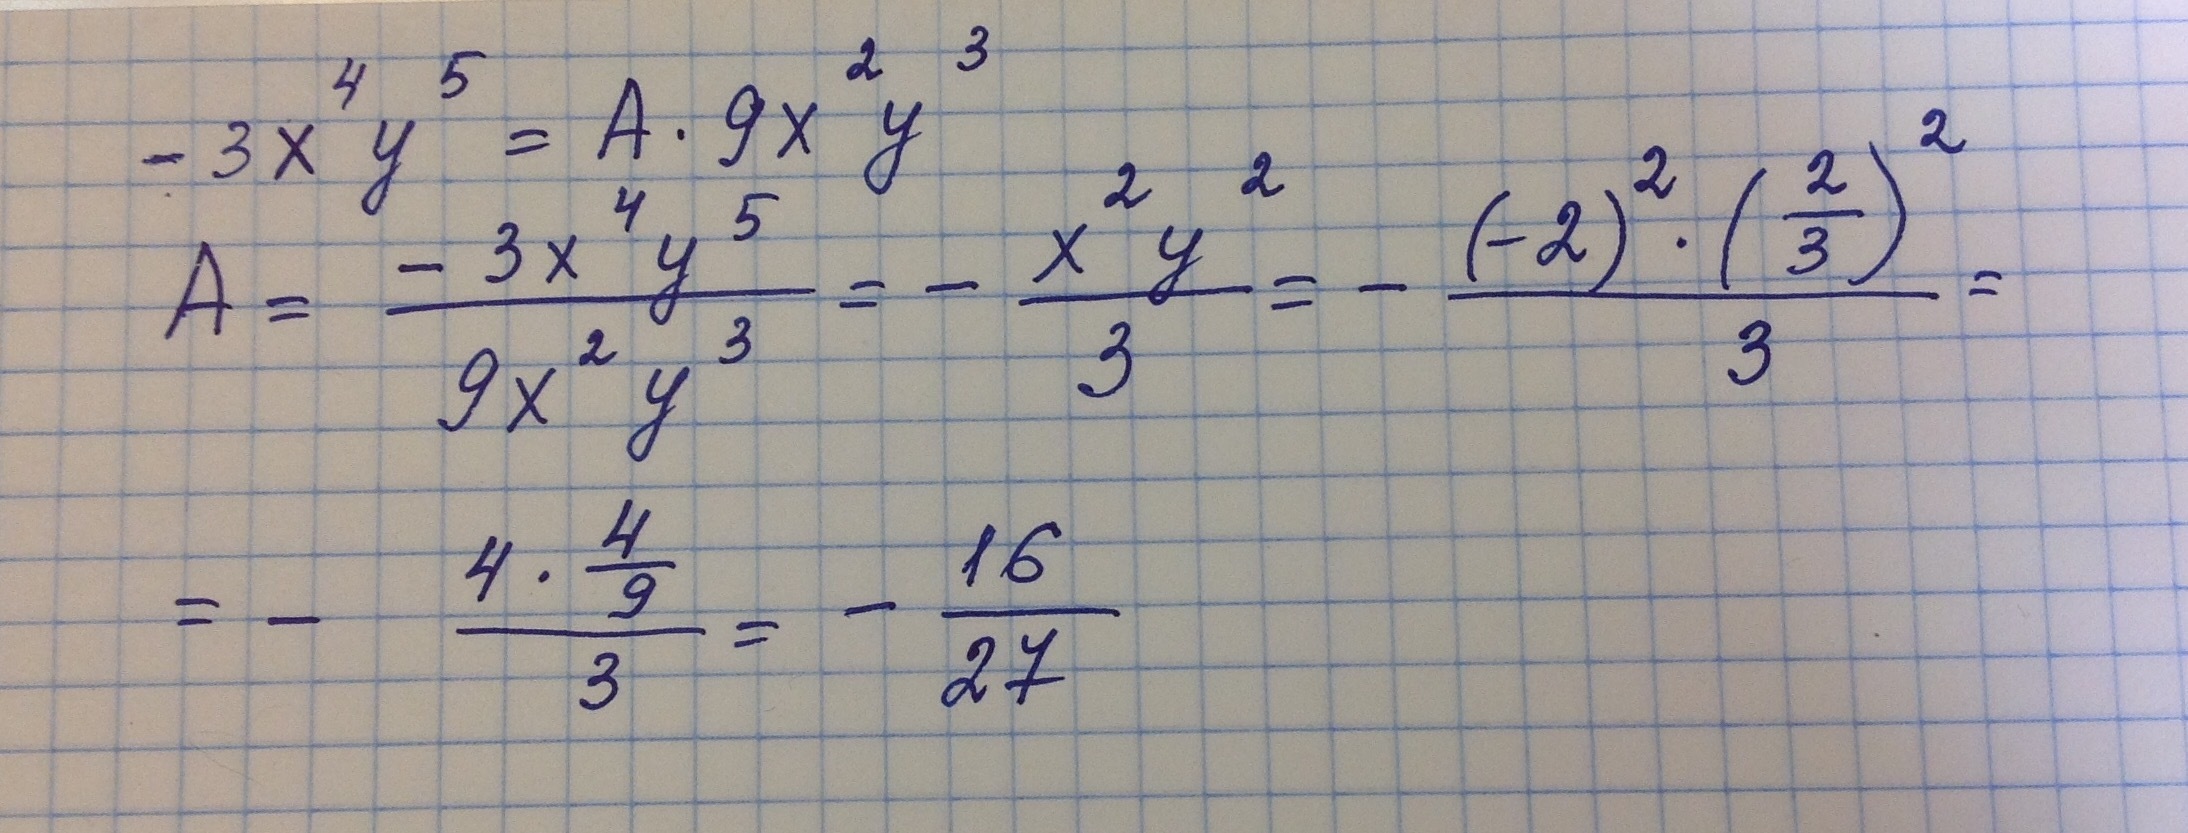 -3x⁴y⁵ = A · 9x²y³
A = \frac{-3x⁴y⁵}{9x²y³} = - \frac{x²y²}{3} = - \frac{(-2)² · (\frac{2}{3})²}{3} =
= - \frac{4 · \frac{4}{9}}{3} = - \frac{16}{27}